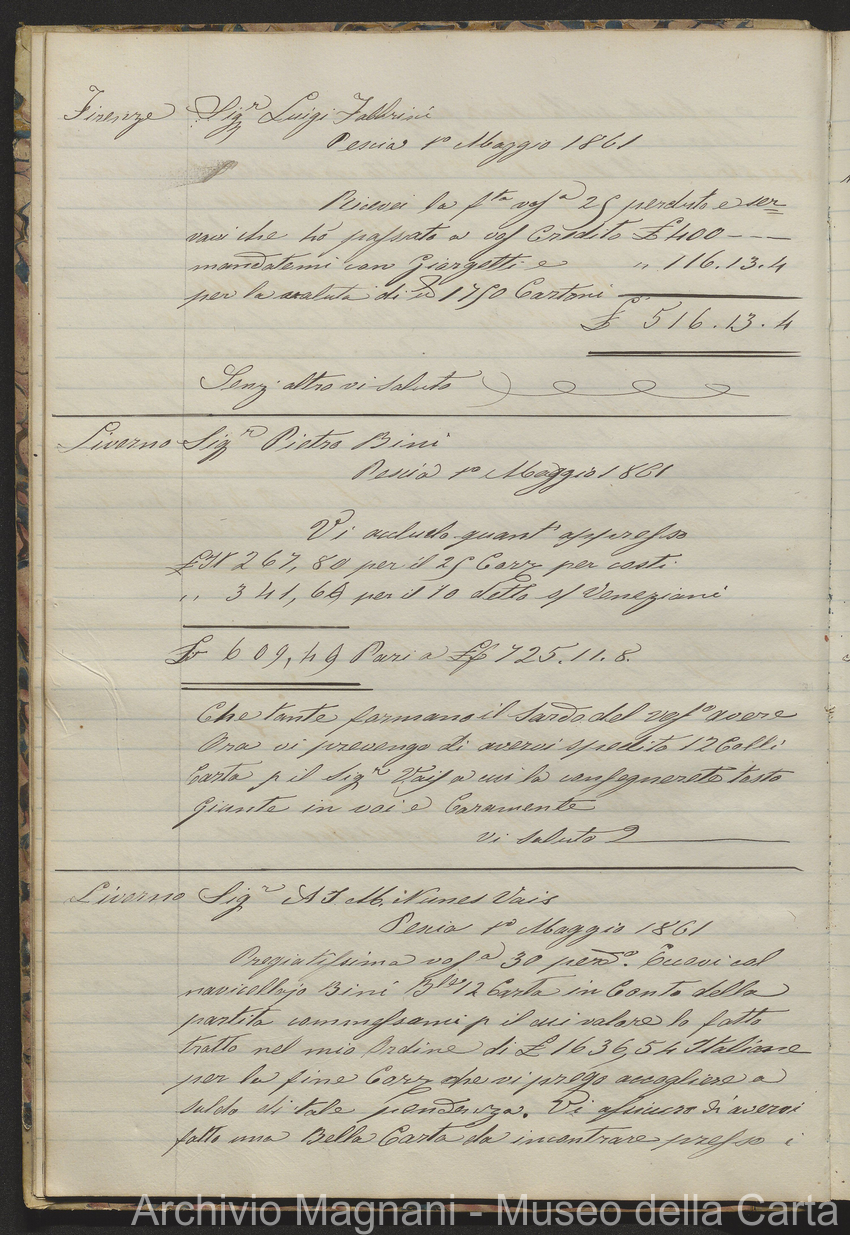 Firenze Sigr Luigi Fabbrini
Pescia 1o Maggio 1861
Ricevei la fta vosa 25 perduto e ser
vavi che hò passato a vos Credito £ 400 - - -
mandatemi con Giorgetti e " 116.13.4
per la valuta di 1750 Cartoni
£ 516.13.4
Senz' altro vi saluto
Livorno Sigr Pietro Bini
Pescia 1o Maggio 1861
Vi accludo quant' appresso
267,80 per il 25 Corr per costì
" 341,69 per il 10 detto s/ Veneziani
609,49 Pari a 725.11.8.
Che tante formano il Saldo del voso avere
Ora vi prevengo di avervi spedito 12 Colli
Carta p il Sigr Vais a cui la consegnerete tosto
Giunte in voi e Caramente
vi saluto
Livorno Sigr M. Nunes Vais
Pescia 1o Maggio 1861
Pregiatissima vosa 30 perdo. Eccovi col
navicellajo Bini Ble 12 Carta in Conto della
partita commessami p il cui valore lo fatto
tratto nel mio Ordine di £ 1636,54 Italiane
per la fine Corr che vi prego accogliere a
saldo di tale pendenza. Vi assicuro d'avervi
fatto una Bella Carta da incontrare presso i
Archivio Magnani - Museo della Carta